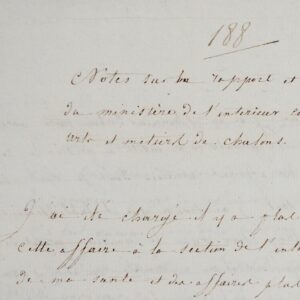 188
Notes sur le rapport et
du ministère de l'interieur co
arts et metiers de chalons.
J'ai été chargé il y a plus
cette affaire à la section de l'inte
de ma santé et des affaires plus